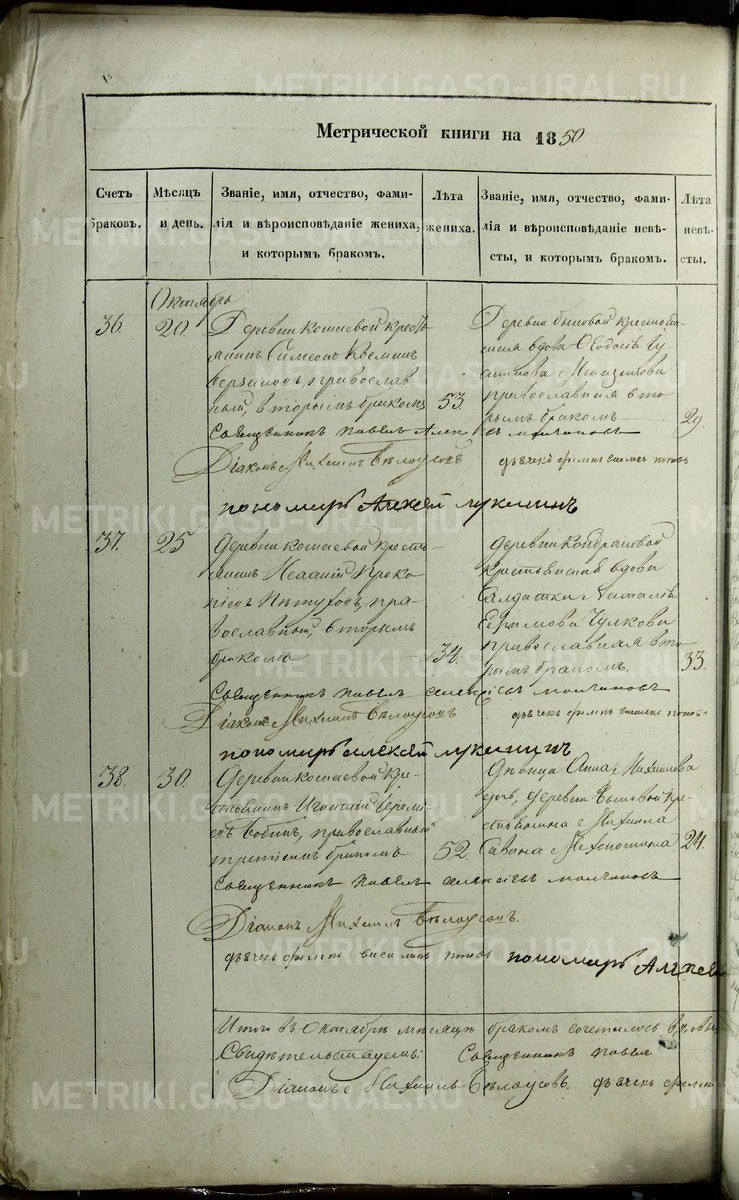 Метрической книги на 1850
Счетъ браковъ.
Мѣсяцъ и день.
Званіе, имя, отчество, фами-
лія и вѣроисповѣданіе жениха,
и которымъ бракомъ.
Лѣта жениха.
Званіе, имя, отчество, фами-
лія и вѣроисповѣданіе невѣ-
сты, и которымъ бракомъ.
Лѣта невѣ-
сты.
Октябрь
36.
20.
Деревни Кошаевой кресть
янинъ Симеонъ Козминъ
православ
ный, вторымъ бракомъ
53.
Деревни Бымовой крестьян
вдова Ѳеодосія
православная вто
рымъ бракомъ
29.
Священникъ Павелъ Алексіевъ Молчановъ
Діаконъ Михаилъ Бѣлоусовъ
дьячекъ Попов
пономарь Алексей Лукинин
37.
25
Деревни Кошаевой кресть
янинъ Исаакій Проко
піевъ Пѣтуховъ, пра
вославный, вторымъ
бракомъ
34.
деревни Кондрашовой
крестьянская вдова
Салдатка Наталья
Ефимова Чулкова
православная вто
рымъ бракомъ.
33.
Священникъ Павелъ Алексіевъ Молчановъ
Діаконъ Михаилъ Бѣлоусовъ
дьячекъ Попов
пономарь алексей Лукинин
38.
30.
Деревни Кошаевой кре
стьянинъ Игнатій Ереме
евъ православный
третьимъ бракомъ
52.
Дѣвица Анна Михаилова
дочь, деревни Бымовой кре
стьянина Михаила
Савина
24.
Священникъ Павелъ Алексіевъ Молчановъ
Діаконъ Михаилъ Бѣлоусовъ.
дьячекъ Попов
пономарь Алексей
Итого въ Октябрѣ мѣсяцѣ бракомъ сочеталось
Свидѣтельствуемъ: Священникъ Павелъ
Діаконъ Михаилъ Бѣлоусовъ. дьячекъ
METRIKI.GASO-URAL.RU